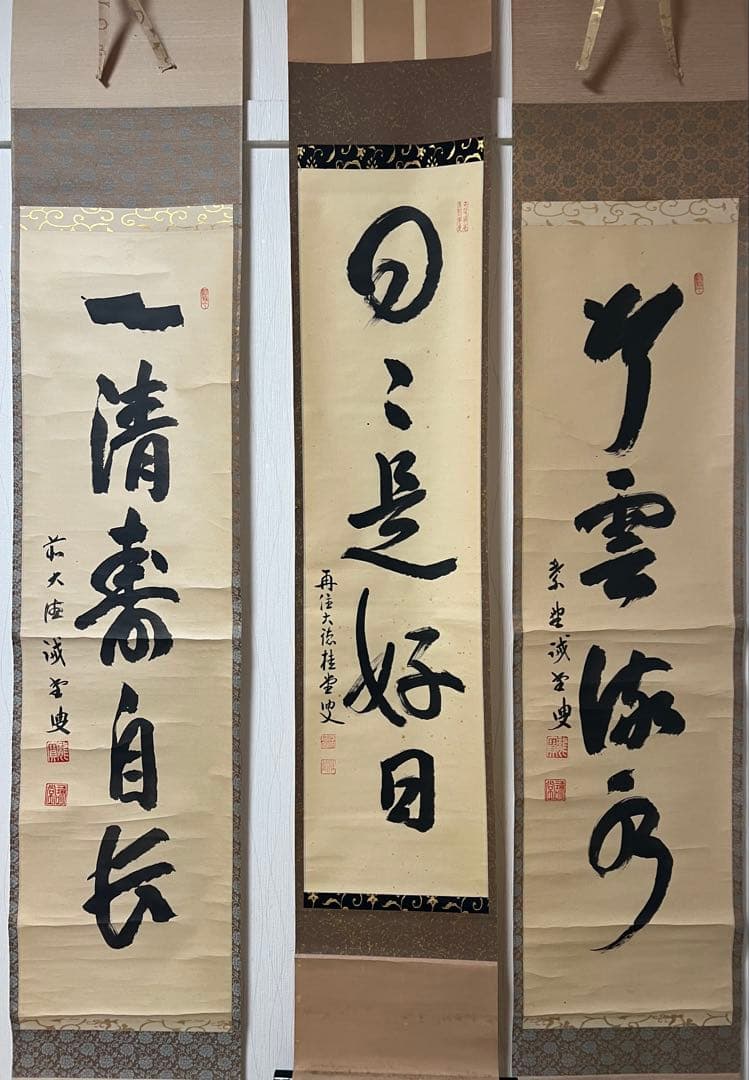 行雲流水
紫埜誠堂叟
日々是好日
再住大徳桂堂叟
一清寿自長
前大徳誠堂叟